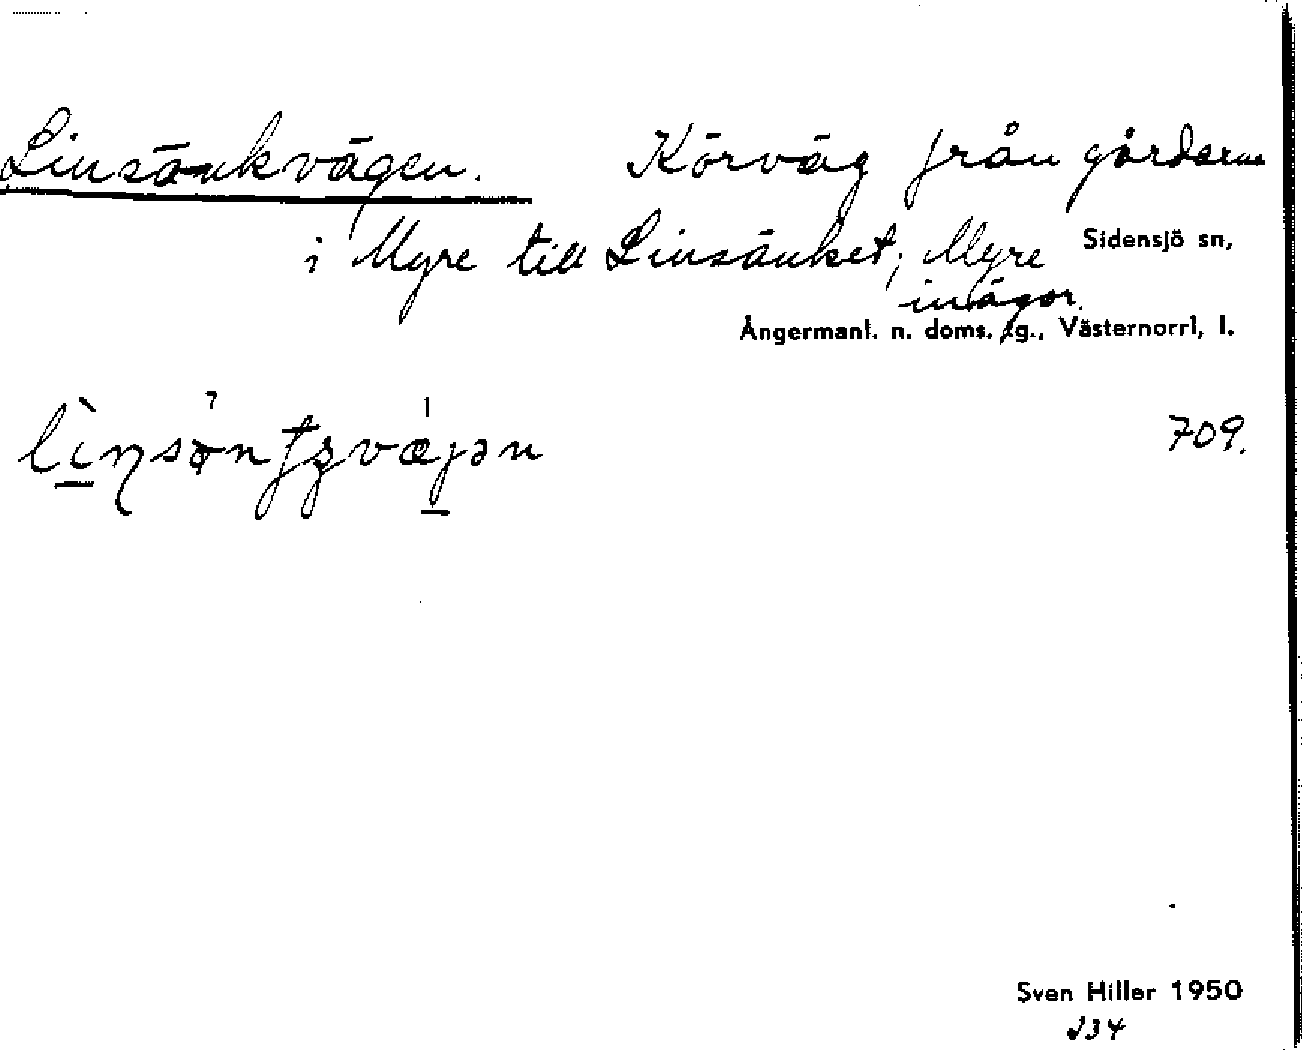 Linsänkvägen. Körväg från gårdarna
i Myre till Linsänket, Myre Sidensjö sn,
inägor.
Ångermanl. n. doms. tg., Västernorrl. l.
709.
Sven Hiller 1950
234